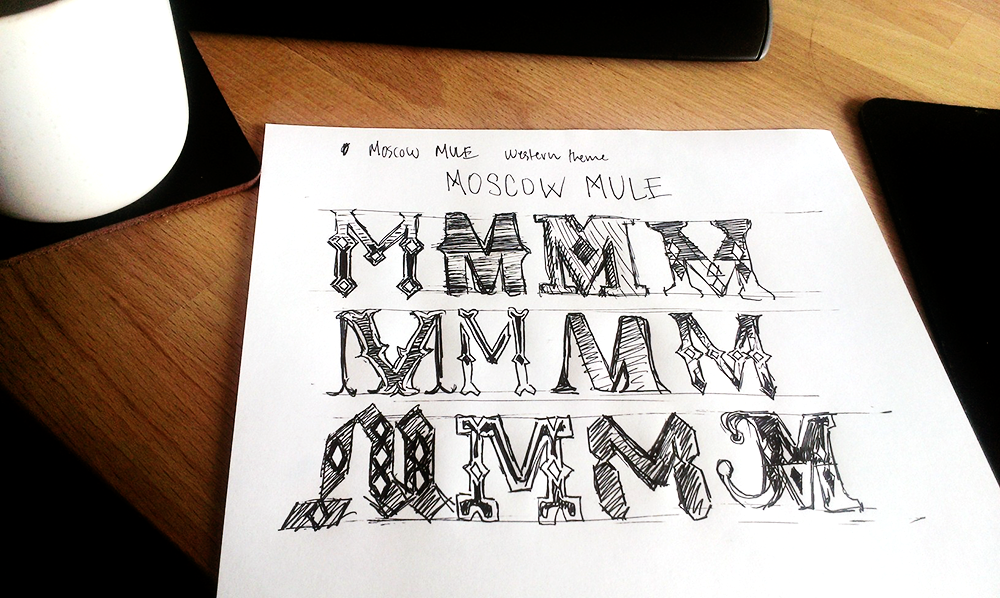 MOSCOW MULE western theme
MOSCOW MULE
M M M M
M M M M
M M M M